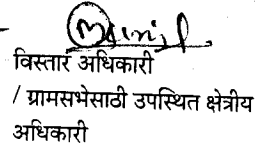 विस्तार अधिकारी
/ ग्रामसभेसाठी उपस्थित क्षेत्रीय
अधिकारी